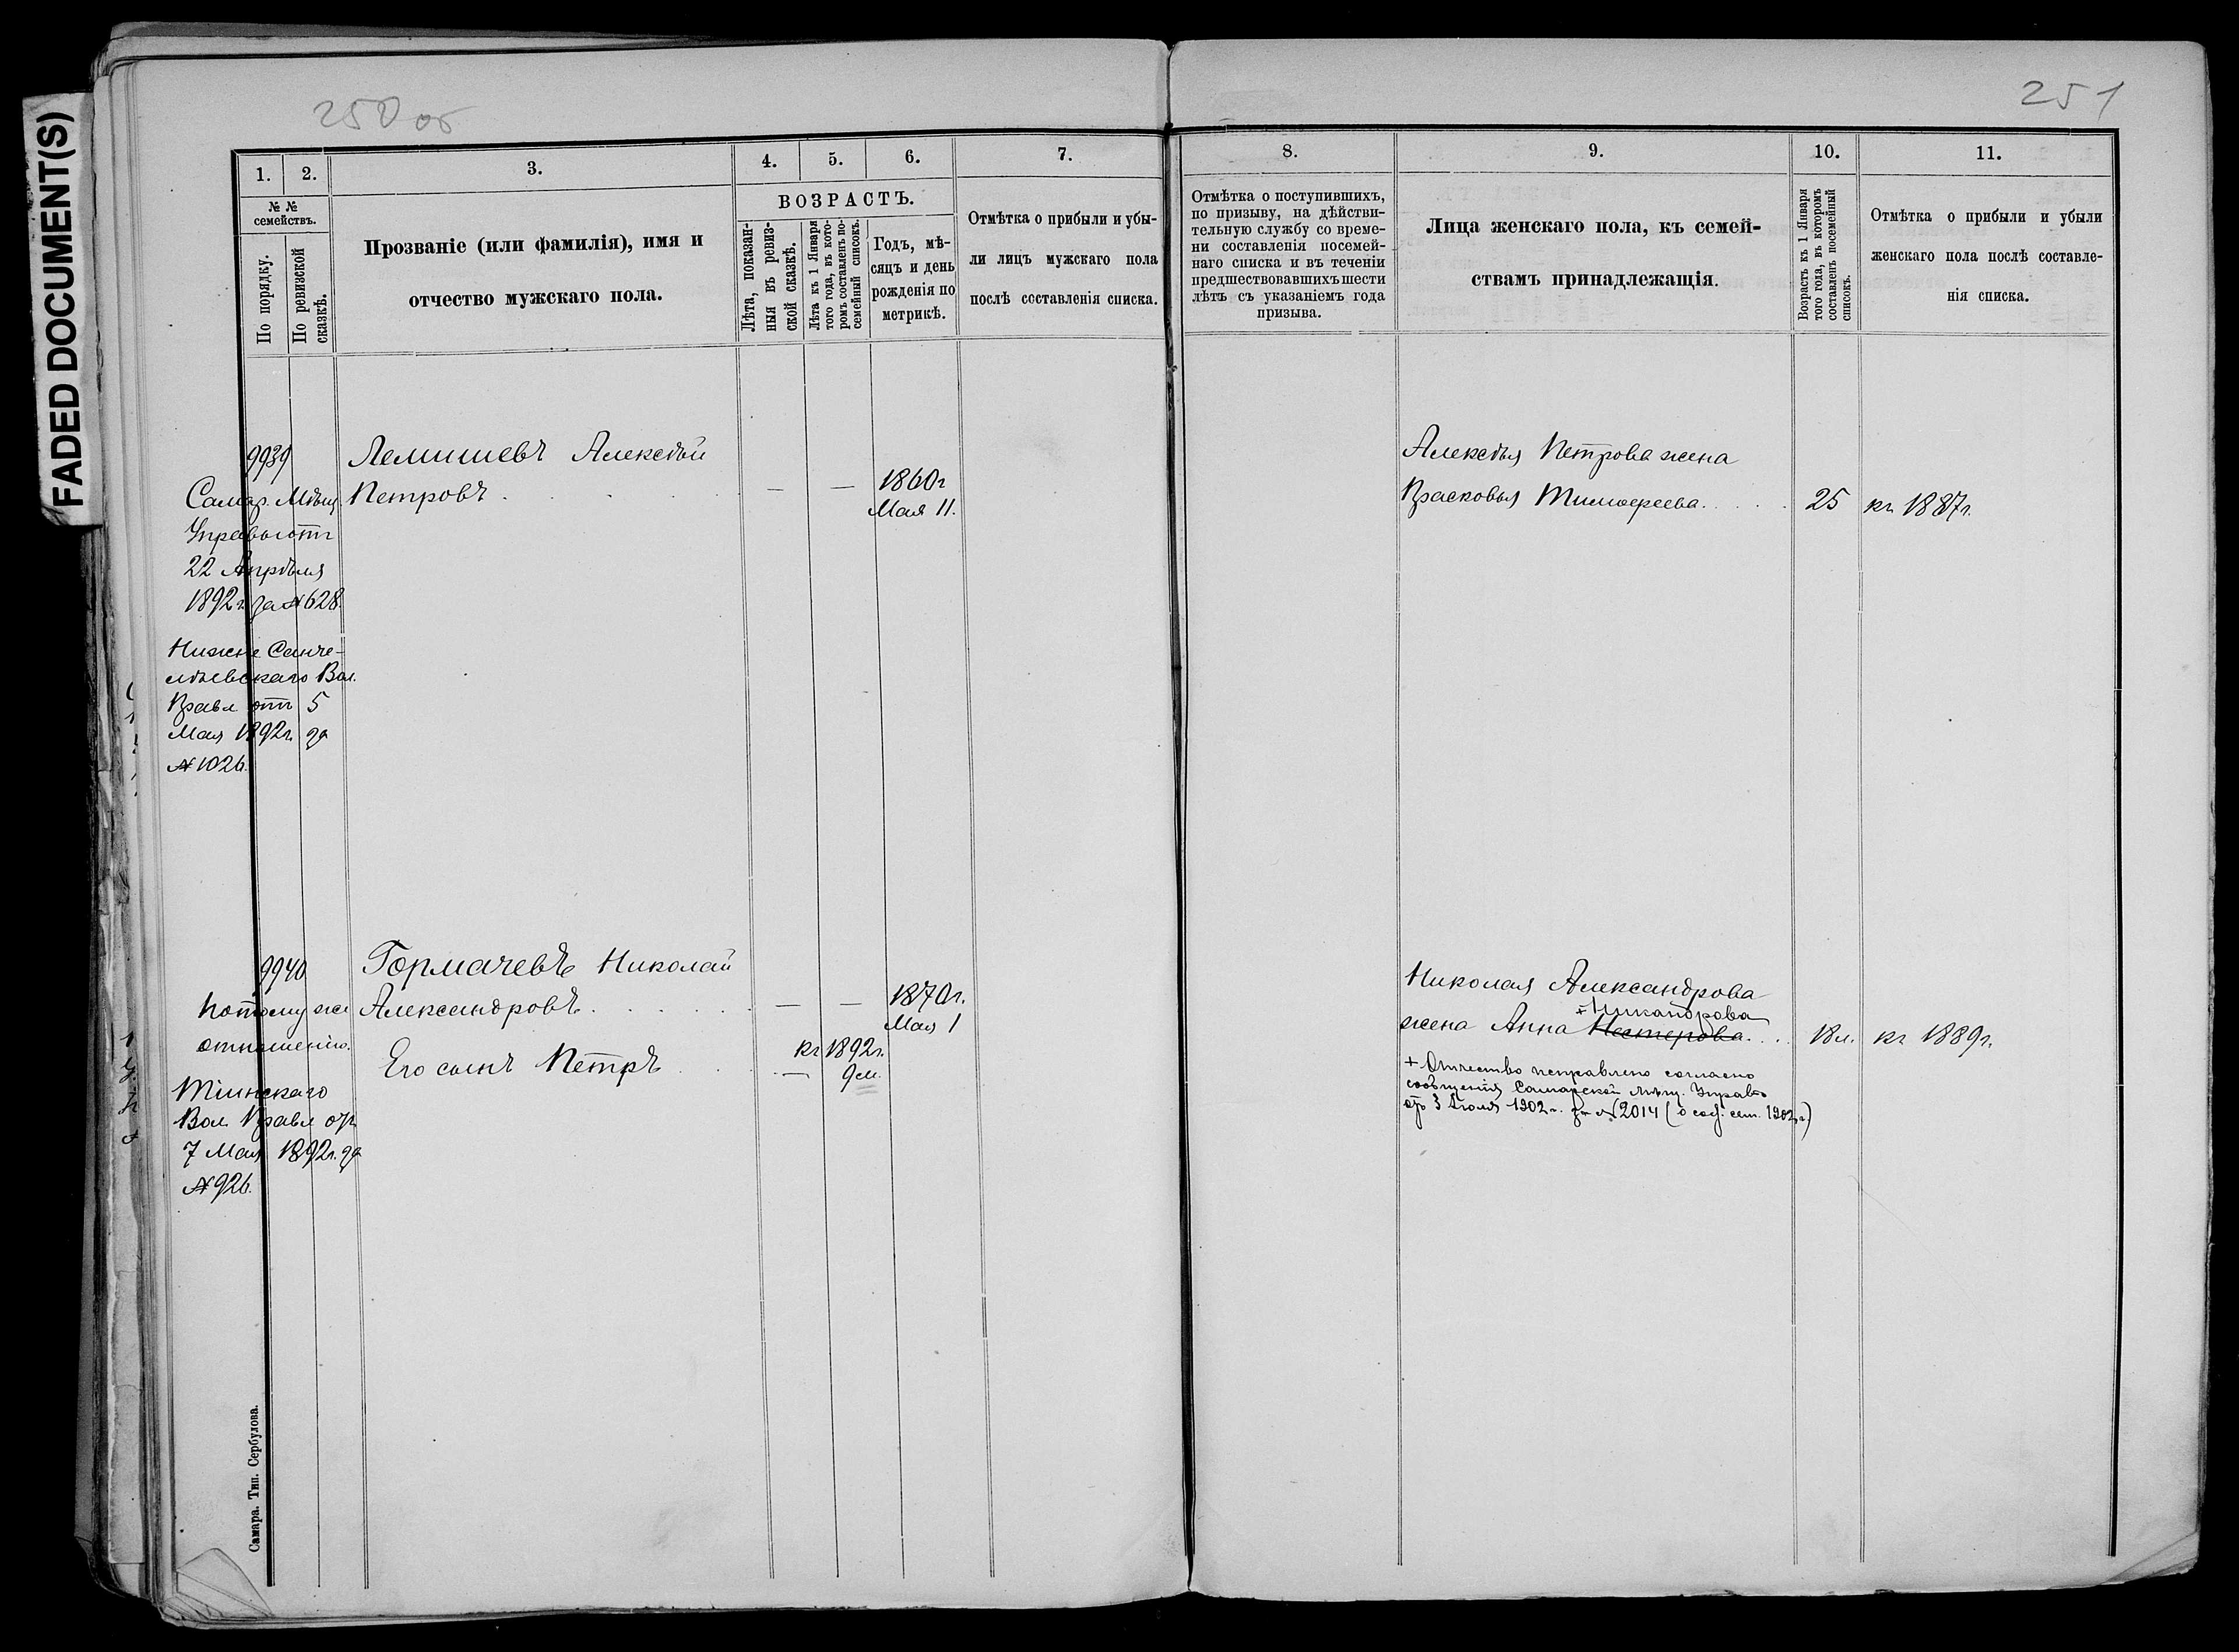 FADED DOCUMENT(S)
250 об
251
1.
2.
3.
4.
5.
6.
7.
№ №
семействъ.
По порядку.
По ревизской
сказкѣ.
Прозваніе (или фамилія), имя и
отчество мужскаго пола.
ВОЗРАСТЪ.
Лѣта, показан-
ныя въ ревиз-
ской сказкѣ.
Лѣта къ 1 Января
того года, въ кото-
ромъ составленъ по-
семейный списокъ.
Годъ, мѣ-
сяцъ и день
рожденія по
метрикѣ.
Отмѣтка о прибыли и убы-
ли лицъ мужскаго пола
послѣ составленія списка.
8.
9.
10.
11.
Отмѣтка о поступившихъ,
по призыву, на дѣйстви-
тельную службу со време-
ни составленія посемей-
наго списка и въ теченіи
предшествовавшихъ шести
лѣтъ съ указаніемъ года
призыва.
Лица женскаго пола, къ семей-
ствамъ принадлежащія.
Возрастъ къ 1 Января
того года, въ которомъ
составленъ посемейный
списокъ.
Отмѣтка о прибыли и убыли
женскаго пола послѣ составле-
нія списка.
9939
Самар. Мѣщ.
Управы отъ
22 Апрѣля
1892 г. за № 628.
Нижне Санче-
лѣевскаго Вол.
Правл отъ 5
Мая 1892 г. за
№ 1026.
Лемишевъ Алексѣй
Петровъ . — — 1860 г
Мая 11.
Алексѣя Петрова жена
Прасковья Тимофеева . . . . 25 къ 1887 г.
9940
По тому же
отношенію.
Тіинскаго
Вол. Правл отъ
7 Мая 1892 г. за
№ 926.
Гормачевъ Николай
Александровъ . — — 1870 г.
Мая 1
Его сынъ Петръ . — къ 1892 г.
9 м.
Николая Александрова
+ Никандрова
жена Анна Нестерова . . . 18 л. къ 1889 г.
+ Отчество исправлено согласно
сообщенія Самарской мѣщ. Управы
отъ 3 Іюля 1902 г. за № 2014 ( 1902 г.)
Самара. Тип. Сербулова.